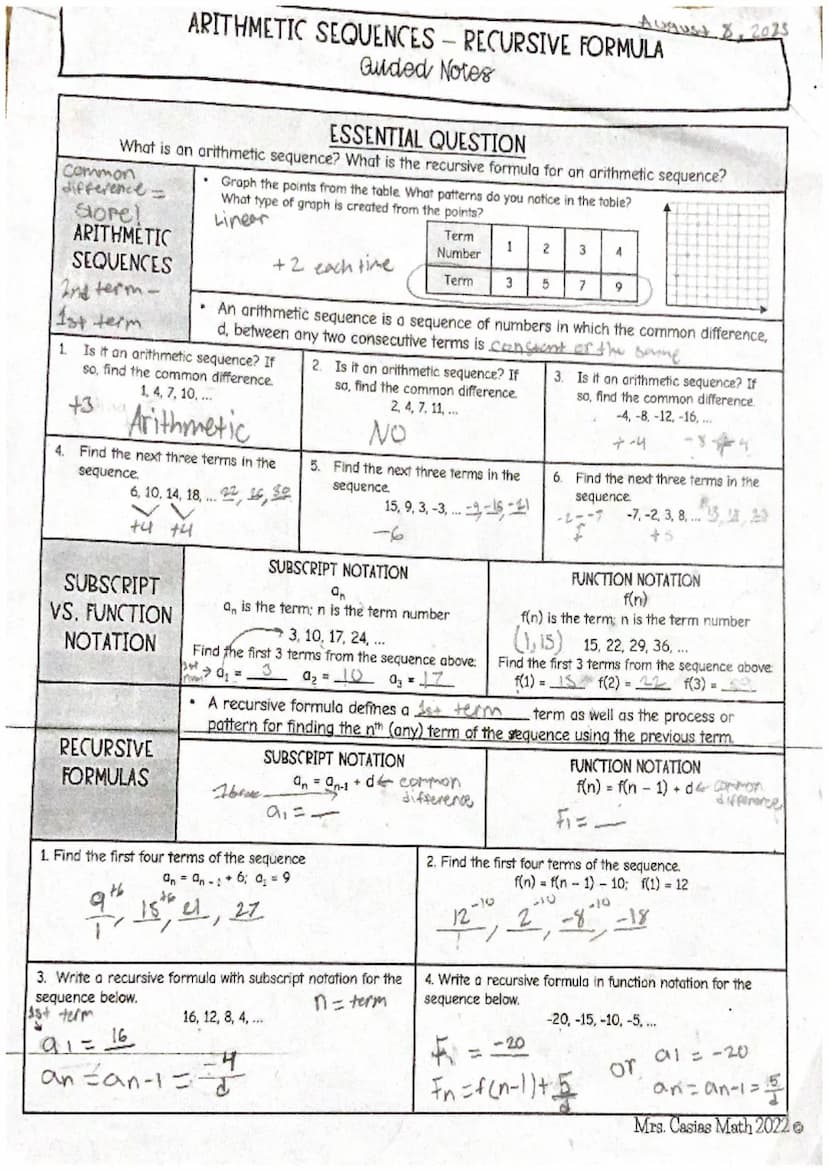 August 8, 2025
ARITHMETIC SEQUENCES – RECURSIVE FORMULA
Guided Notes
ESSENTIAL QUESTION
What is an arithmetic sequence? What is the recursive formula for an arithmetic sequence?
common
difference =
slope!
ARITHMETIC
SEQUENCES
2nd term -
1st term
• Graph the points from the table. What patterns do you notice in the table?
What type of graph is created from the points?
Linear
+2 each time
Term Number 1 2 3 4
Term 3 5 7 9
• An arithmetic sequence is a sequence of numbers in which the common difference,
d, between any two consecutive terms is constant or the same
1. Is it an arithmetic sequence? If
so, find the common difference.
1, 4, 7, 10, ...
+3
Arithmetic
2. Is it an arithmetic sequence? If
so, find the common difference.
2, 4, 7, 11, ...
NO
3. Is it an arithmetic sequence? If
so, find the common difference.
-4, -8, -12, -16, ...
+-4
4. Find the next three terms in the
sequence.
6, 10, 14, 18, ... 22, 26, 30
+4 +4
5. Find the next three terms in the
sequence.
15, 9, 3, -3, ... -9 -15 -21
-6
6. Find the next three terms in the
sequence.
-7, -2, 3, 8, ... 13, 18, 23
-2--7
+5
SUBSCRIPT
VS. FUNCTION
NOTATION
SUBSCRIPT NOTATION
aₙ
aₙ is the term; n is the term number
3, 10, 17, 24, ...
Find the first 3 terms from the sequence above:
1st term → a₁ = 3 a₂ = 10 a₃ = 17
FUNCTION NOTATION
f(n)
f(n) is the term; n is the term number
(1,15) 15, 22, 29, 36, ...
Find the first 3 terms from the sequence above:
f(1) = 15 f(2) = 22 f(3) =
RECURSIVE
FORMULAS
• A recursive formula defines a 1st term term as well as the process or
pattern for finding the nᵗʰ (any) term of the sequence using the previous term.
SUBSCRIPT NOTATION
aₙ = aₙ₋₁ + d ← common
difference
a₁ = __
FUNCTION NOTATION
f(n) = f(n – 1) + d ← common
difference
F₁ = __
1. Find the first four terms of the sequence
aₙ = aₙ₋₁ + 6; a₁ = 9
9 +6, 15 +6, 21, 27
1
2. Find the first four terms of the sequence.
f(n) = f(n – 1) – 10; f(1) = 12
-10 -10 -10
12, 2, -8, -18
1
3. Write a recursive formula with subscript notation for the
sequence below.
n = term
1st term
16, 12, 8, 4, ...
a₁ = 16
an = an-1 = -4
d
4. Write a recursive formula in function notation for the
sequence below.
-20, -15, -10, -5, ...
F₁ = -20
Fn = f(n-1) + 5
d
or
a1 = -20
an = an-1 = 5
d
Mrs. Casias Math 2022 ©